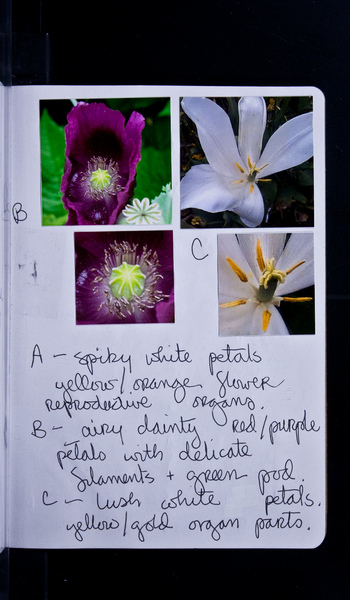 B
C
A - spiky white petals
yellow/orange flower
reproductive organs.
B - airy dainty red/purple
petals with delicate
filaments + green pod.
C - Lush white petals.
yellow/gold organ parts.